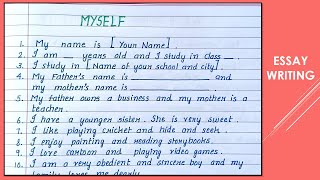 MYSELF
1. My name is [Your Name].
2. I am __ years old and I study in class __.
3. I study in [Name of your school and city].
4. My Father's name is ________ and
my mother's name is ________.
5. My father owns a business and my mother is a
teacher.
6. I have a younger sister. She is very sweet.
7. I like playing cricket and hide and seek.
8. I enjoy painting and reading storybooks.
9. I love cartoon and playing video games.
10. I am a very obedient and sincere boy and my
family loves me dearly.
ESSAY
WRITING